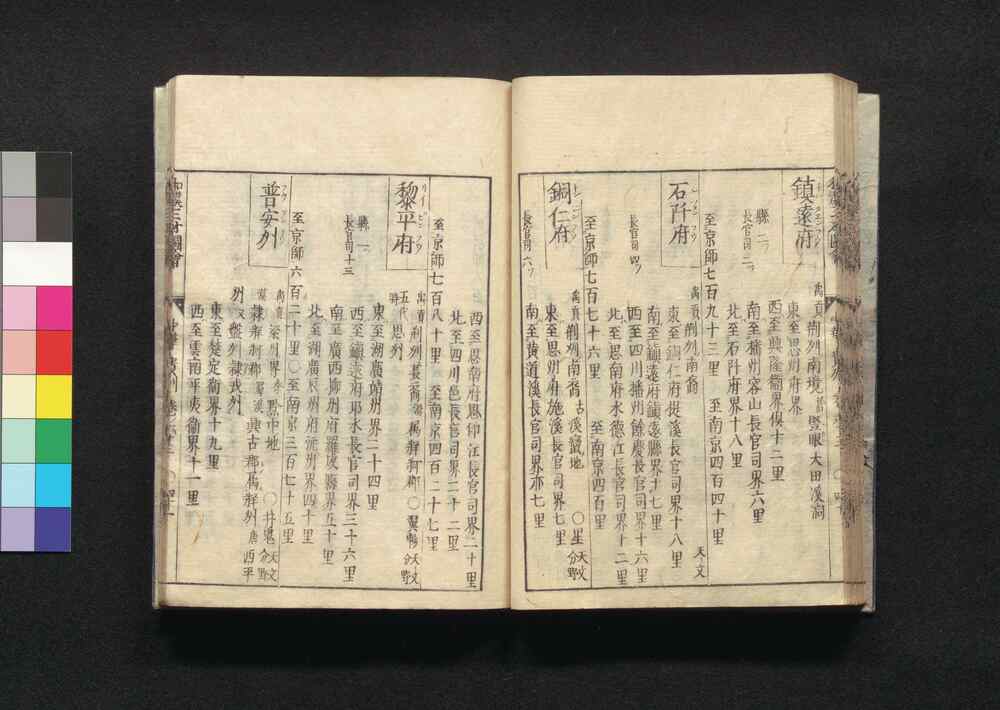 鎮遠府
縣二ツ
長官司二ツ
禹貢荊州南境
竪眼大田溪洞
東至思州府界
西至興隆衞界俱十二里
南至播州容山長官司界六里
北至石阡府界十八里
至京師七百九十三里 至南京四百四十里
石阡府
長官司四ツ
禹貢荊州南裔
天文
東至銅仁府提溪長官司界十八里
南至鎮遠府鎮遠縣界十七里
西至四川播州餘慶長官司界十六里
北至思南府水德江長官司界十二里
至京師七百七十六里 至南京四百里
銅仁府
長官司六ツ
禹貢荊州南裔古溪蠻地 〇星天文分野
南至思州府施溪長官司界七里
南至黄道溪長官司界亦七里
西至思南府思印江長官司界二十里
北至四川邑長官司界二十二里
至京師七百八十里 至南京四百二十七里
黎平府
縣一
長官司十三
禹貢荊州 〇翼軫天文分野
五代思州
東至湖廣靖州界二十四里
西至鎮遠府邛水長官司界三十六里
南至廣西柳州府羅城縣界五十里
北至湖廣辰州府沅州界四十里
至京師六百二十里〇至南京三百七十五里
普安州
禹貢梁州界 黔中地 〇井鬼天文分野
隸牂牁郡 蜀漢興古郡 牂州 唐西平
州又盤州 隸戎州
東至安定衞界十九里
西至雲南平夷衞界十一里